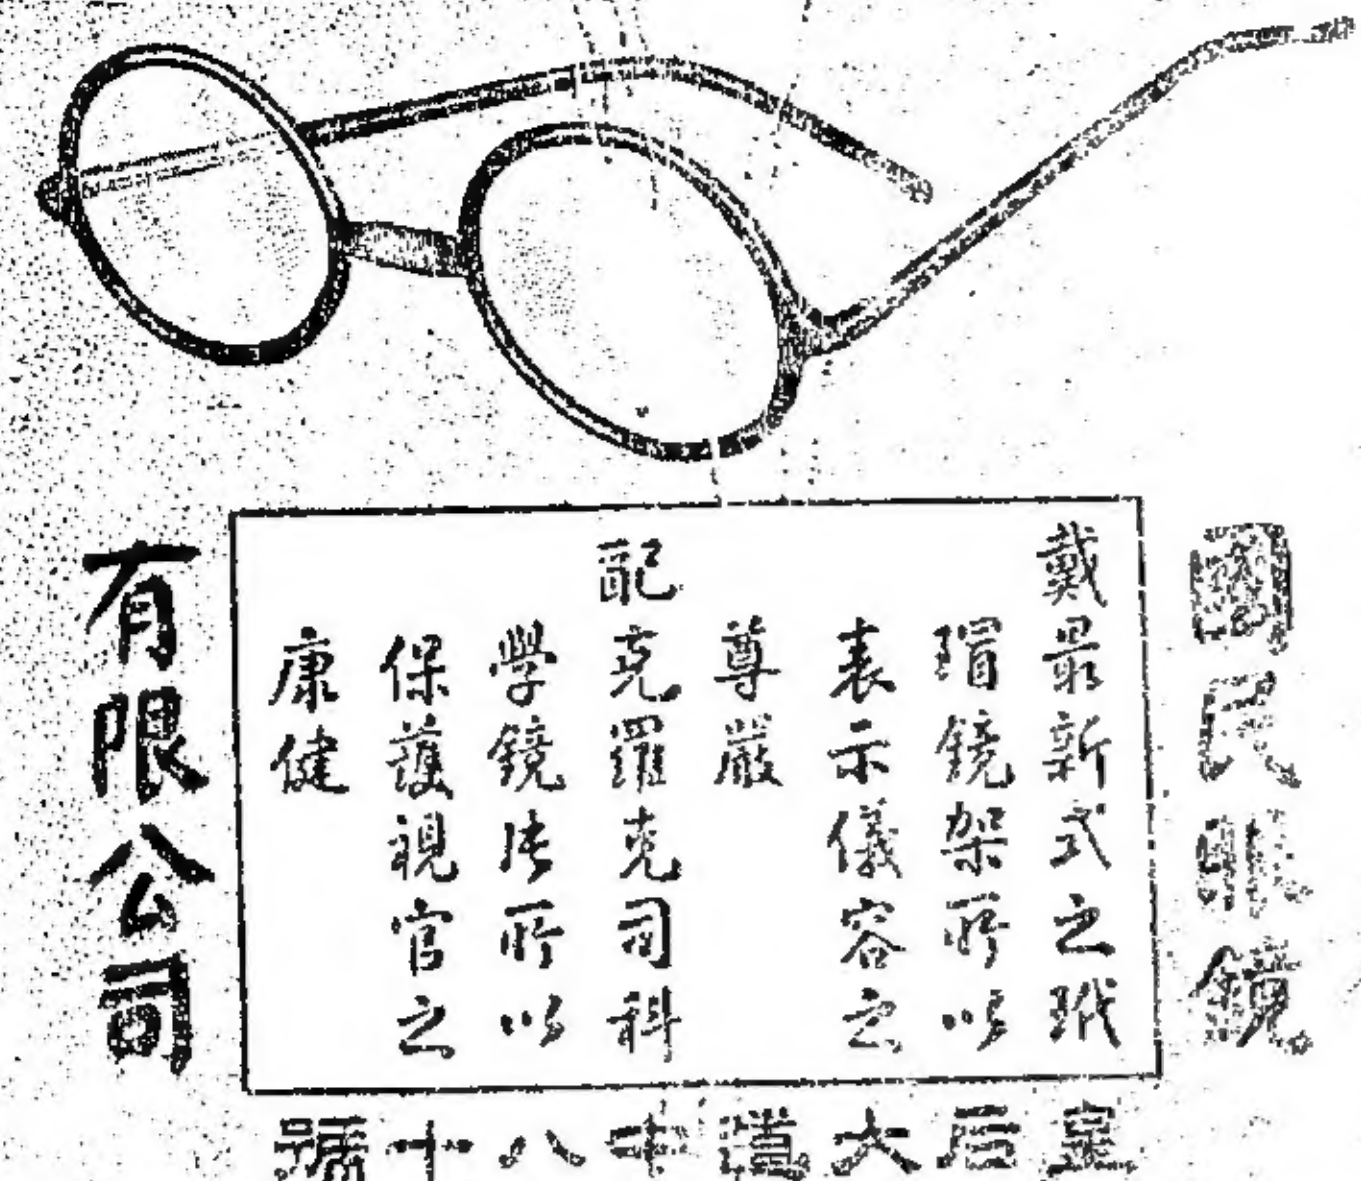 國民眼鏡
戴最新式之玳
瑁鏡架所以
表示儀容之
尊嚴
配克羅克司科
學鏡片所以
保護視官之
康健
有限公司
皇后大道中八十號